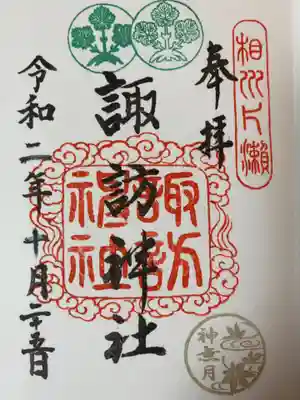 相州片瀬
奉拝
諏訪神社
諏訪神社
令和二年十月二十五日
神無月